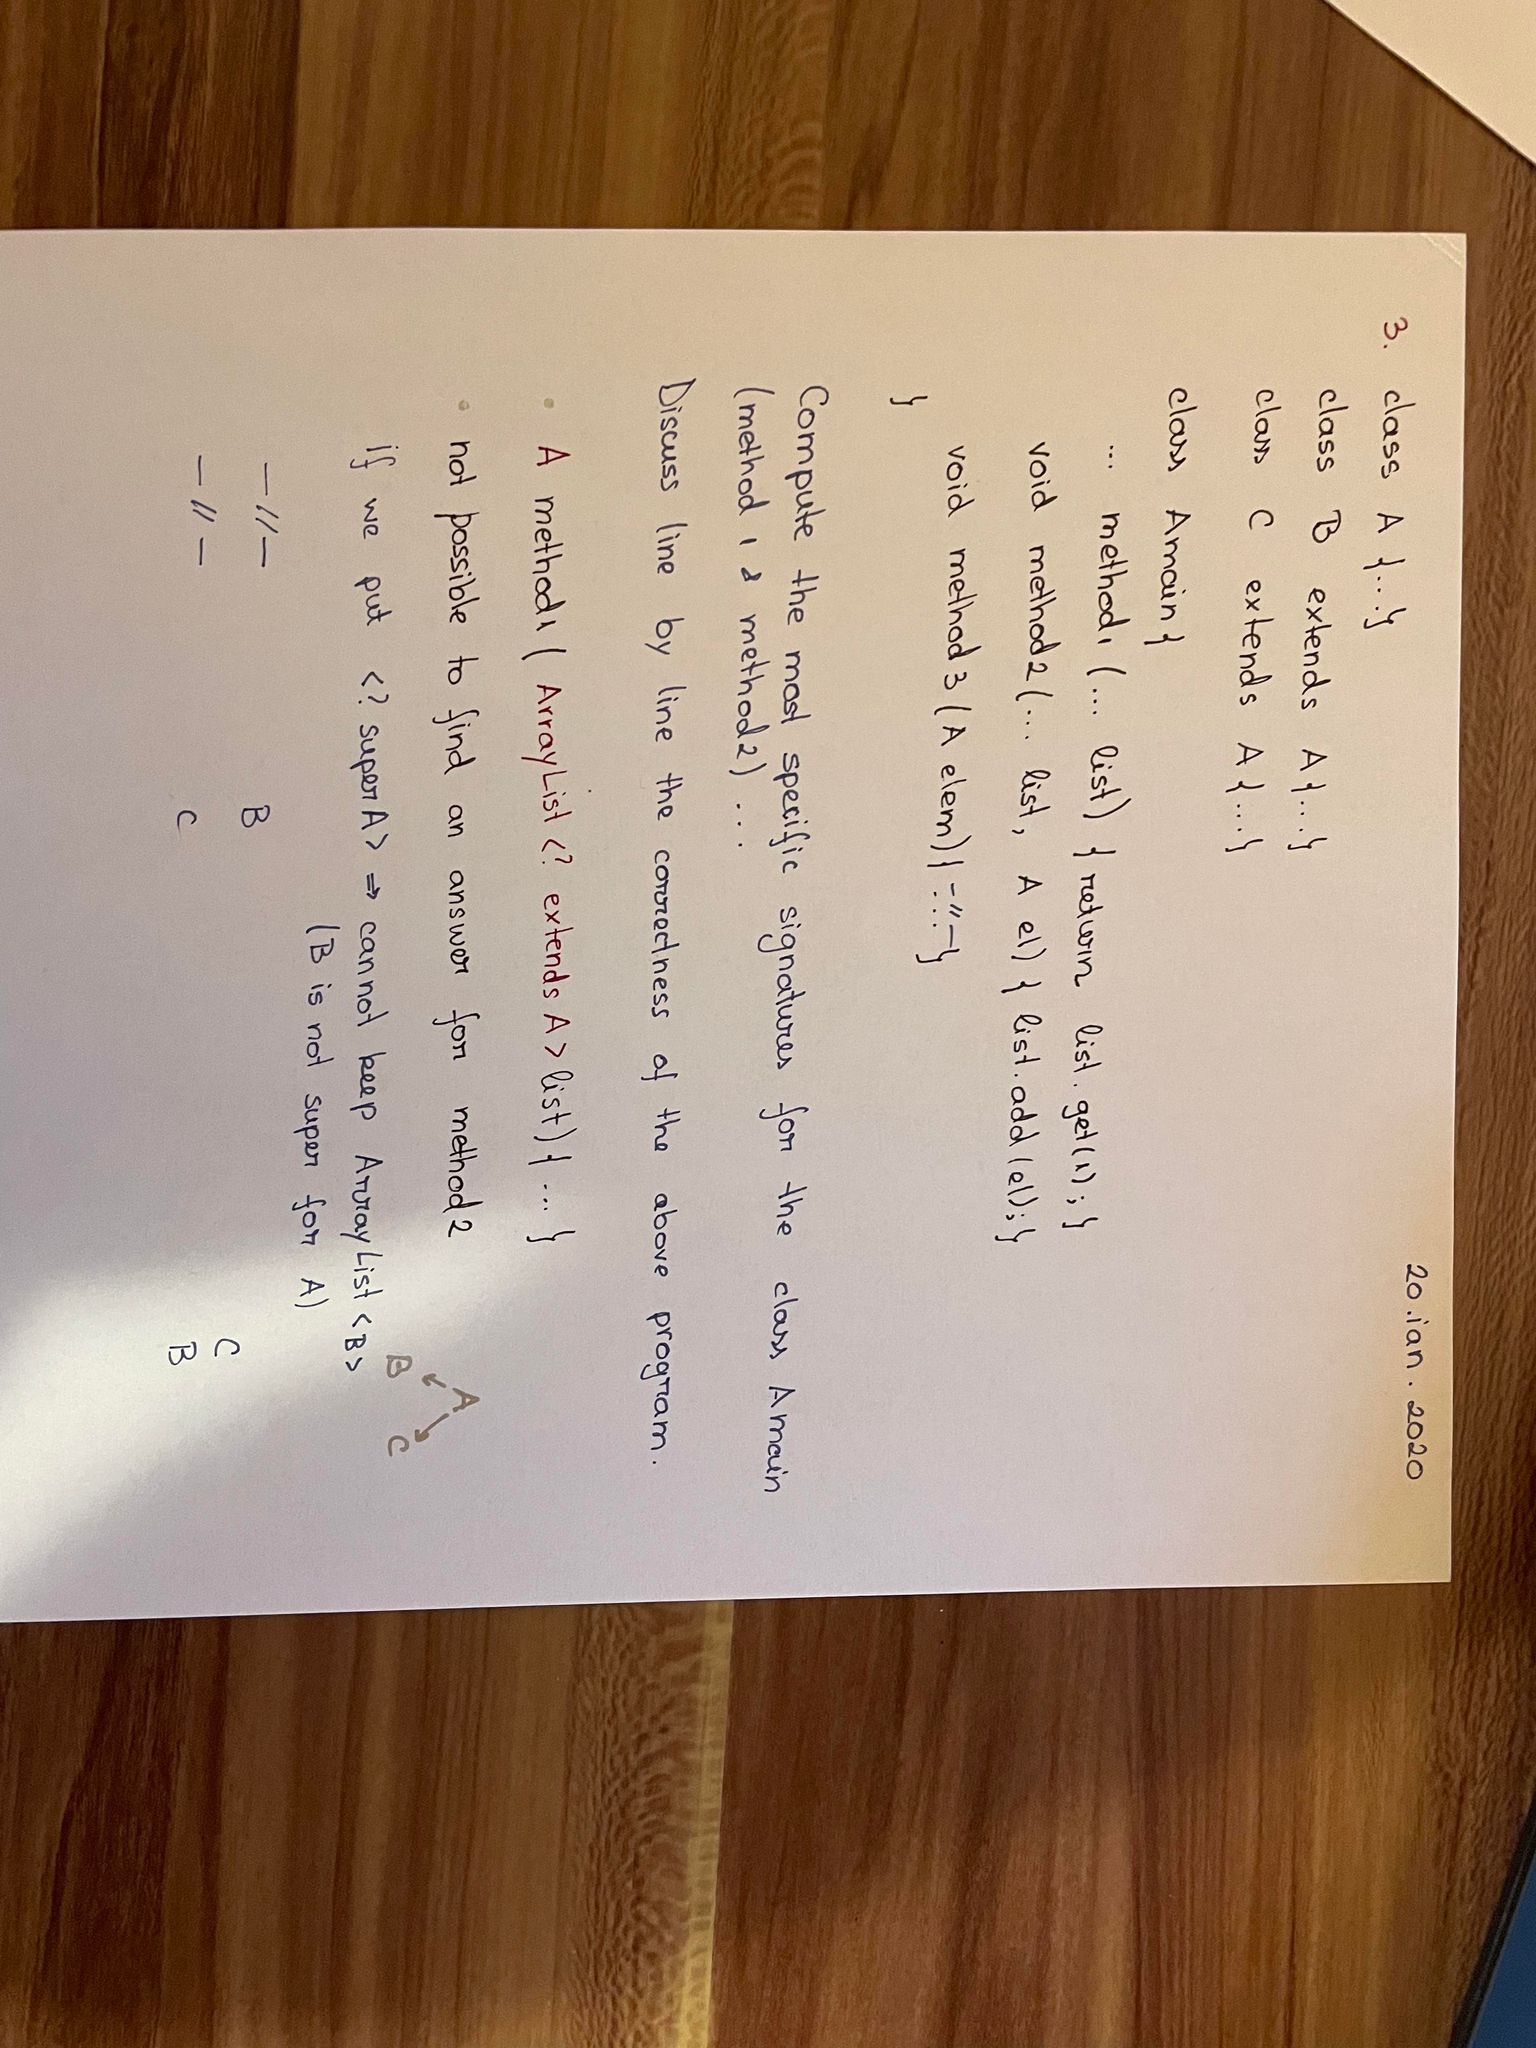 20.ian.2020
3. class A {...}
class B extends A {...}
class C extends A {...}
class Amain {
... method1 (... list) { return list.get(1); }
void method2 (... list, A el) { list.add(el); }
void method3 (A elem) { -"- ... }
}
Compute the most specific signatures for the class Amain
(method 1 & method2) ...
Discuss line by line the correctness of the above program.
• A method1 ( ArrayList <? extends A> list) { ... }
• not possible to find an answer for method2
A
B C
if we put <? super A> ⇒ cannot keep ArrayList <B>
(B is not super for A)
—//— B C
—//— C B